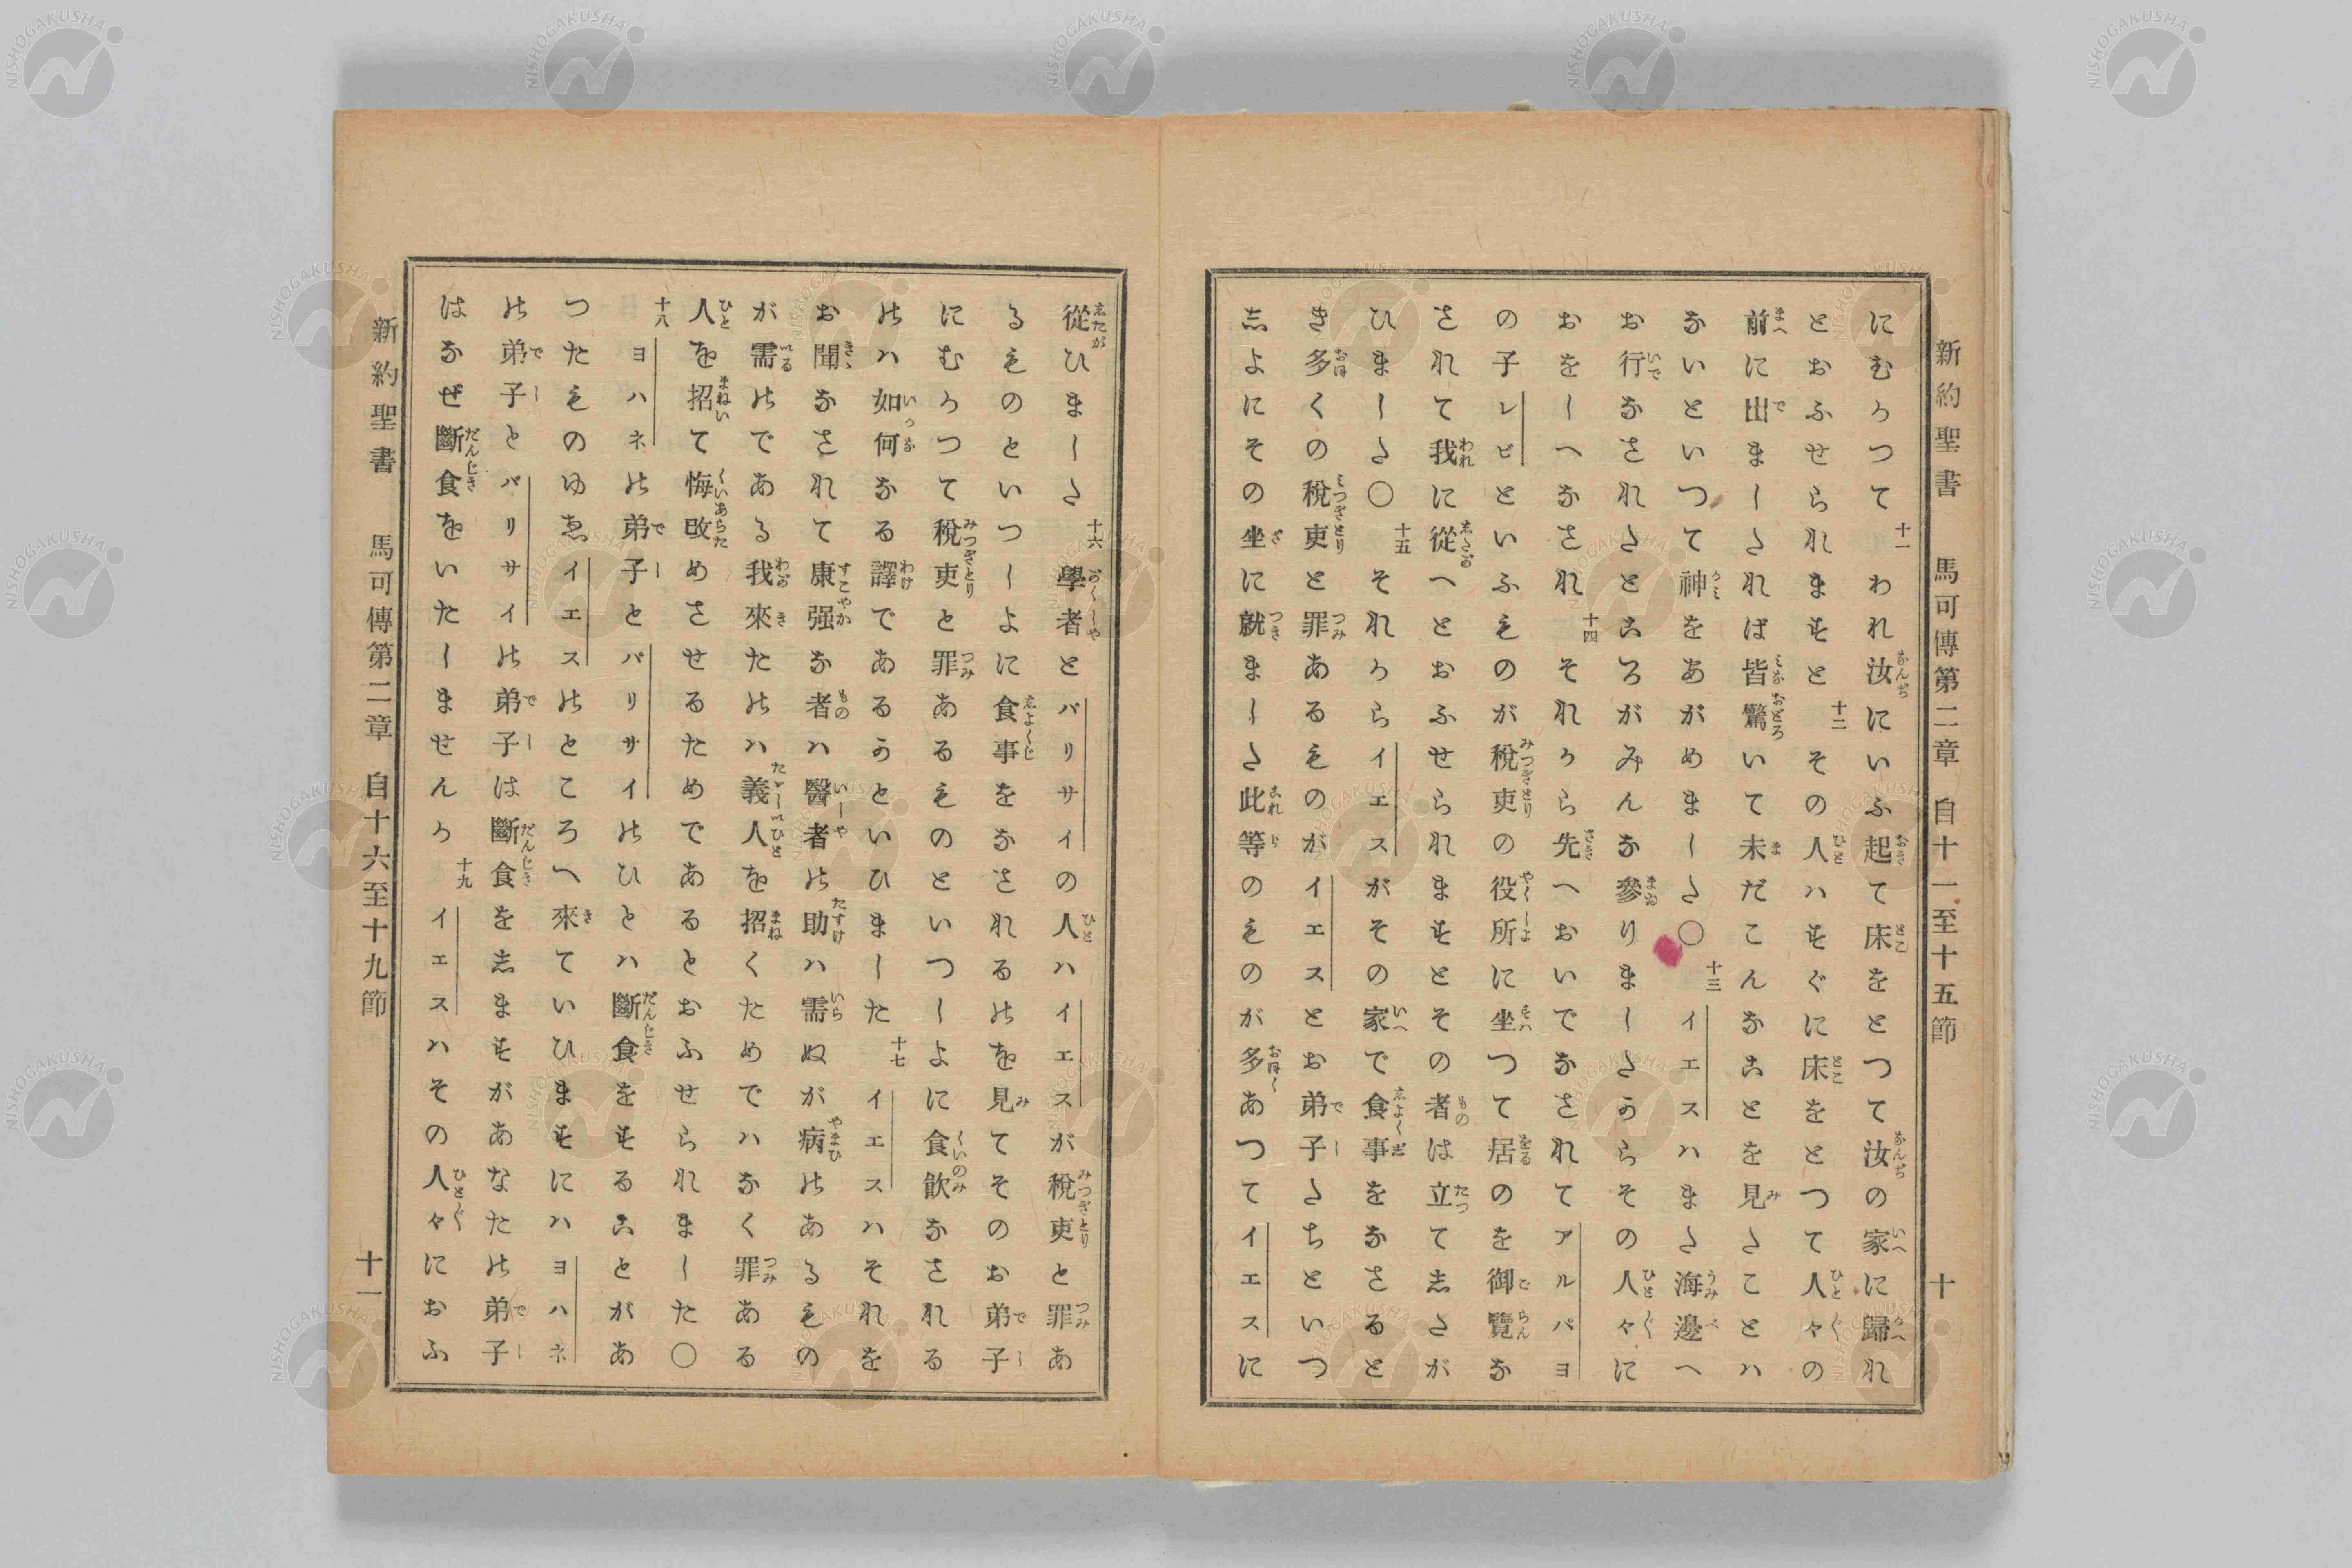 新約聖書　馬可傳第二章　自十一至十五節　十
にむかつて十一われ汝にいふ起て床をとつて汝の家に歸れ
とおふせられますと十二その人ハすぐに床をとつて人々の
前に出ましたれば皆驚いて未だこんなことを見たことハ
ないといつて神をあがめました〇十三イエスハまた海邊へ
お行なされたところがみんな參りましたからその人々に
おをしへなされ十四それから先へおいでなされてアルパヨ
の子レビといふものが稅吏の役所に坐つて居のを御覽な
されて我に從へとおふせられますとその者は立てしたが
ひました〇十五それからイエスがその家で食事をなさると
き多くの稅吏と罪あるものがイエスとお弟子たちといつ
しよにその坐に就ました此等のものが多あつてイエスに
從ひました十六學者とパリサイの人ハイエスが稅吏と罪あ
るものといつしよに食事をなされるのを見てそのお弟子
にむかつて稅吏と罪あるものといつしよに食飮なされる
のハ如何なる譯であるかといひました十七イエスハそれを
お聞なされて康强な者ハ醫者の助ハ需ぬが病のあるもの
が需のである我來たのハ義人を招くためでハなく罪ある
人を招て悔改めさせるためであるとおふせられました〇
十八ヨハネの弟子とパリサイのひとハ斷食をすることがあ
つたものゆゑイエスのところへ來ていひますにハヨハネ
の弟子とパリサイの弟子は斷食をしますがあなたの弟子
はなぜ斷食をいたしませんか十九イエスハその人々におふ
新約聖書　馬可傳第二章　自十六至十九節　十一